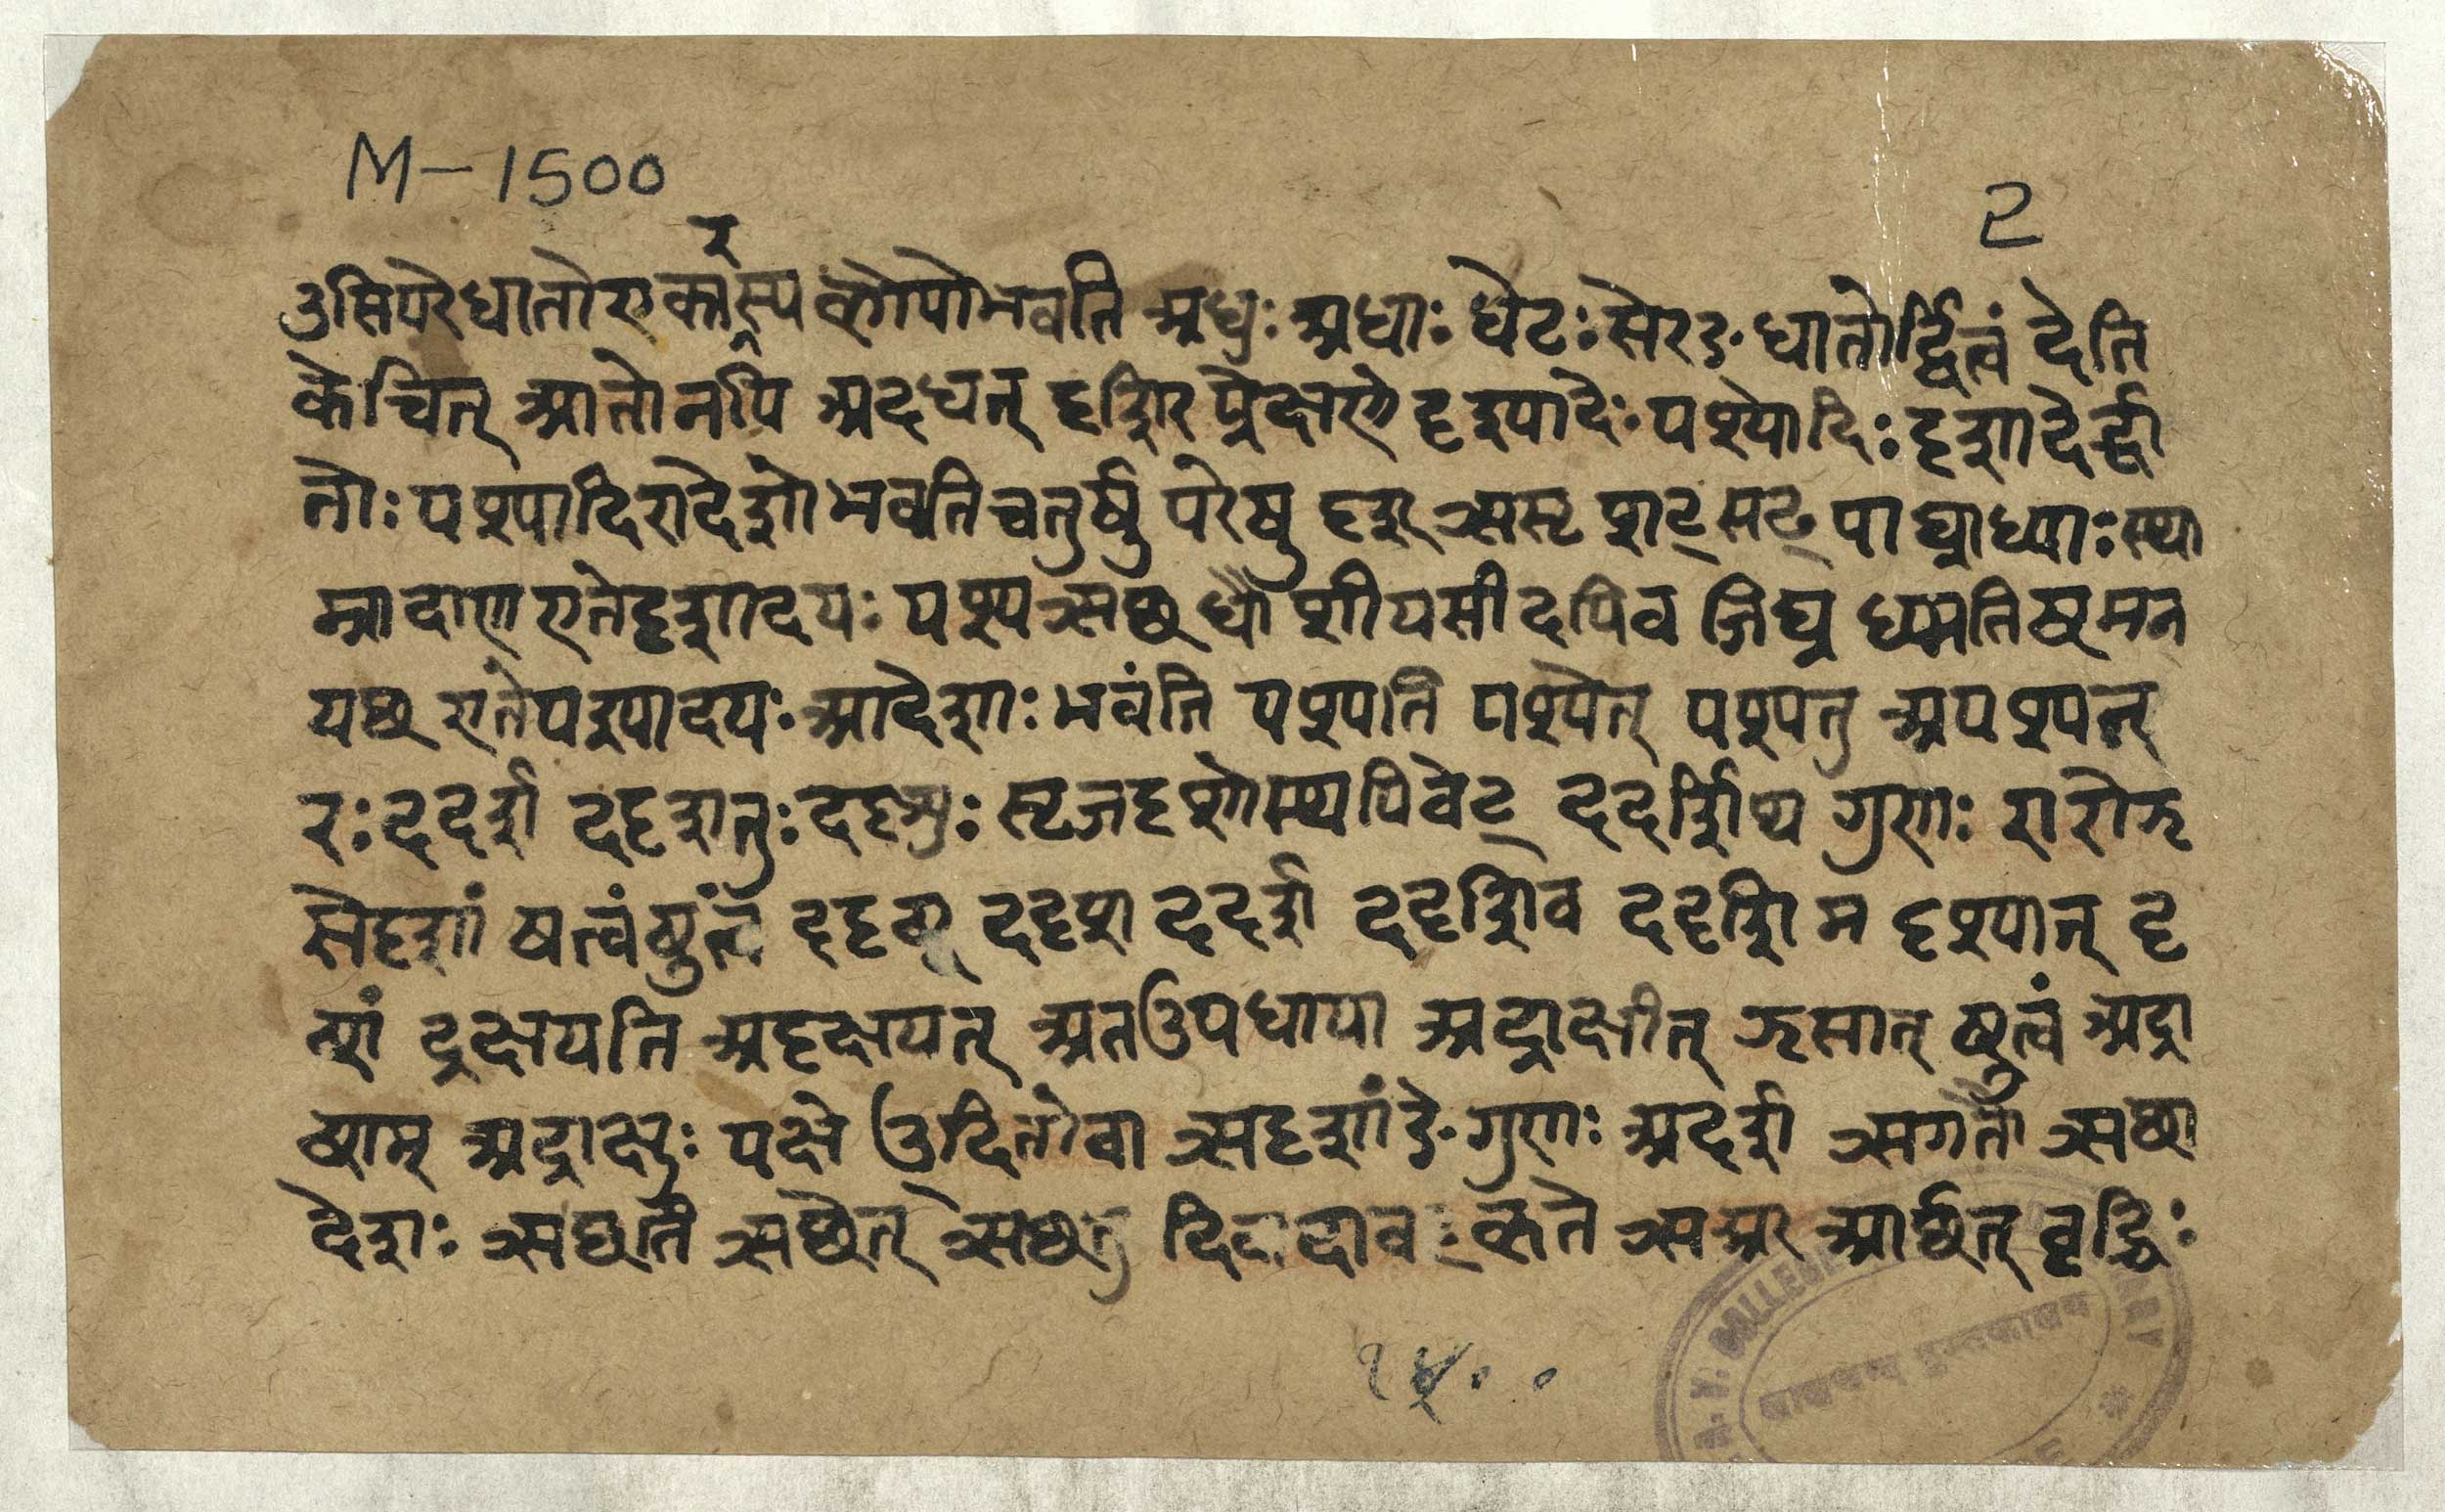 M-1500
2
र
उसिपरेधातोरुकास्य लोपोभवति अधुः अधाः धेटः सेरङ् धातोर्द्वित्वं देति
केचित् आतोनपि अदधत् दृशिर् प्रेक्षणे दृश्पादेः पश्पादिः दृशादेर्द्धा
तोः पश्पादिरादेशो भवति चतुर्षु परेषु दृश् ऋसृ शट् सट् पा घ्रा ध्माः स्था
म्ना दाण एतेदृशादयः पश्प ऋछ धौ शीयसीदपिव जिघ्र धमतिष्ठ मन
यछ एतेपश्पादयः आदेशाः भवंति पश्पति पश्पेत् पश्पतु अपश्पत्
रः ददर्श ददृशतुः ददृशुः सृजदृशोस्थपिवेट् ददर्शिथ गुणः रारोऋ
सेदृशां षत्वं ष्टुत्वं ददृशथुः ददृश ददर्श ददृशिव ददृशिम दृश्पात् दृ
त्यां द्रक्षयति अदृक्षयत् अतउपधाया अद्राक्षीत् ऋसात् ष्टुत्वं अद्रा
ष्टाम् अद्राक्षुः पक्षे उदितोवा ऋदृशां ङे गुणः अदर्श ऋगतौ ऋछा
देशः ऋछति ऋछेत् ऋछतु दिवादाव कृते ऋअर आर्छत् वृद्धिः
१५००
लालचन्द पुस्तकालय